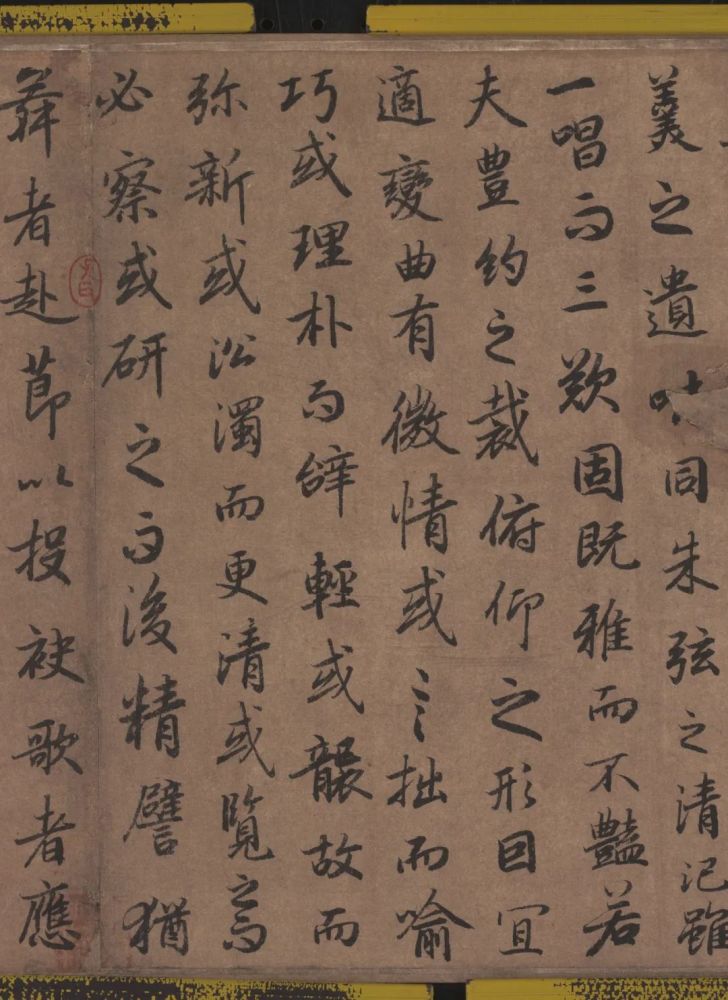 羹之遺同朱弦之清氾雖
一唱而三歎固既雅而不豔若
夫豐約之裁俯仰之形因宜
適變曲有微情或言拙而喻
巧或理朴而辭輕或襲故而
弥新或沿濁而更清或覽之而
必察或研之而後精譬猶
舞者赴節以投袂歌者應